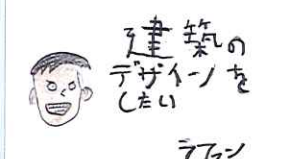 建築の
デザインを
したい
ラファン